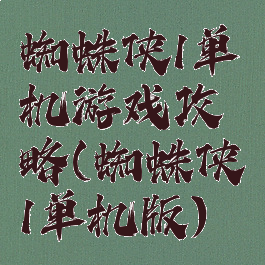 蜘蛛侠1单
机游戏攻
略(蜘蛛侠
1单机版)